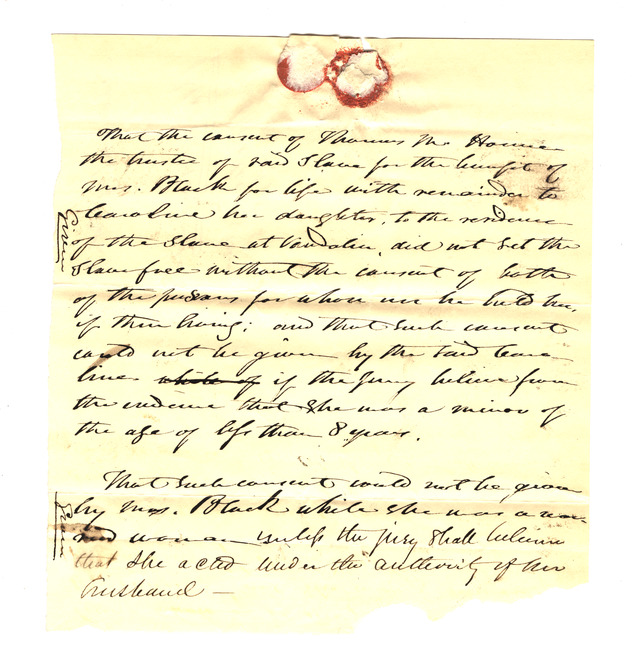 That the consent of Thomas Mc Honie
the trustee of said Slave for the benefit of
Mrs. Black for life with remainder to
Caroline her daughter, to the residence
of the Slave at Vandalia, did not set the
Slave free without the consent of both
of the persons for whose use he held her,
if then living; and that such consent
could not be given by the said Caro
line while of if the jury believe from
the evidence that she was a minor of
the age of less than 8 years.
Given
That such consent could not be given
by Mrs. Black while she was a mar
ried woman unless the jury shall believe
that she acted under the authority of her
husband —
Given